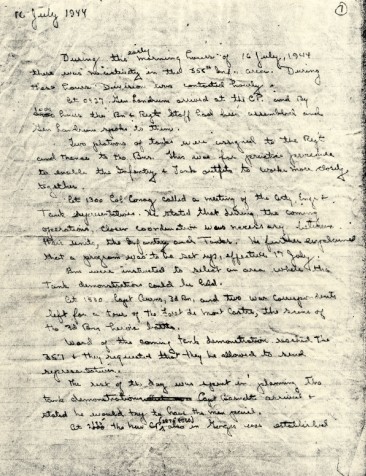 16 July 1944
7
During the early morning hours of 16 July, 1944
there was no activity in the 358th Inf. area. During
these hours Division was contacted hourly.
At 0127, Gen Landrum arrived at the CP. and by
hours the Bn & Regt Staff had been assembled and
Gen Landrum spoke to them.
Two platoons of tanks were assigned to the Regt
and thence to the Bns. This was for practice
to enable the Infantry & Tank outfits to work more closely
together.
At 1300 Col Conroy called a meeting of the &
Tank representatives. He stated that during the coming
operations, closer coordination was necessary between
units, the Infantry and Tanks. He further explained
that a program was to be set up, effective 17 July.
Bns were instructed to select an area where the
Tank demonstration could be held.
At 1330, Capt 3d Bn, and two war correspondents
left for a tour of the Foret de Mont Castre, the scene
of the 3d Bns heroic battle.
Word of the coming tank demonstration reached the
357 & they requested that they be allowed to send
representatives.
The rest of the day was spent in planning the
tank demonstration Capt arrived &
stated he would try to have the men
At the also in Gorges was established